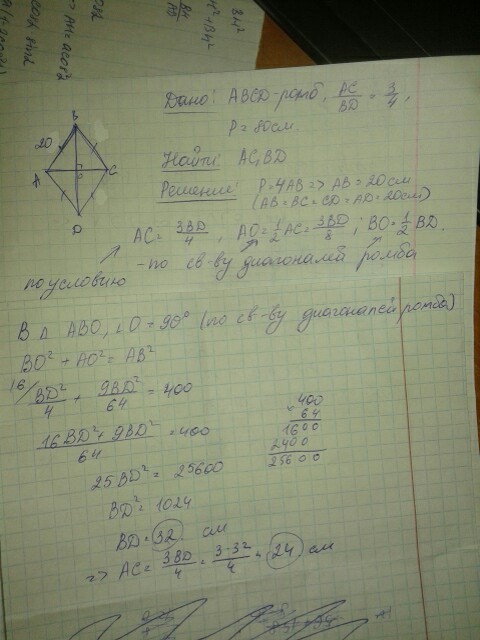 Дано: ABCD - ромб, AC/BD = 3/4,
P = 80см
Найти: AC, BD
Решение: P=4AB => AB = 20см
(AB = BC = CD = AD = 20см)
B
20
A
C
O
D
AC = 3BD/4, AO = 1/2 AC = 3BD/8; BO = 1/2 BD.
по условию
- по св-ву диагоналей ромба
В △ ABO, ∠O = 90° (по св-ву диагоналей ромба)
BO² + AO² = AB²
16/ BD²/4 + 9BD²/64 = 400
16BD² + 9BD²/64 = 400
400
64
1600
2400
25600
25BD² = 25600
BD² = 1024
BD = 32 см
=> AC = 3BD/4 = 3·32/4 = 24 см